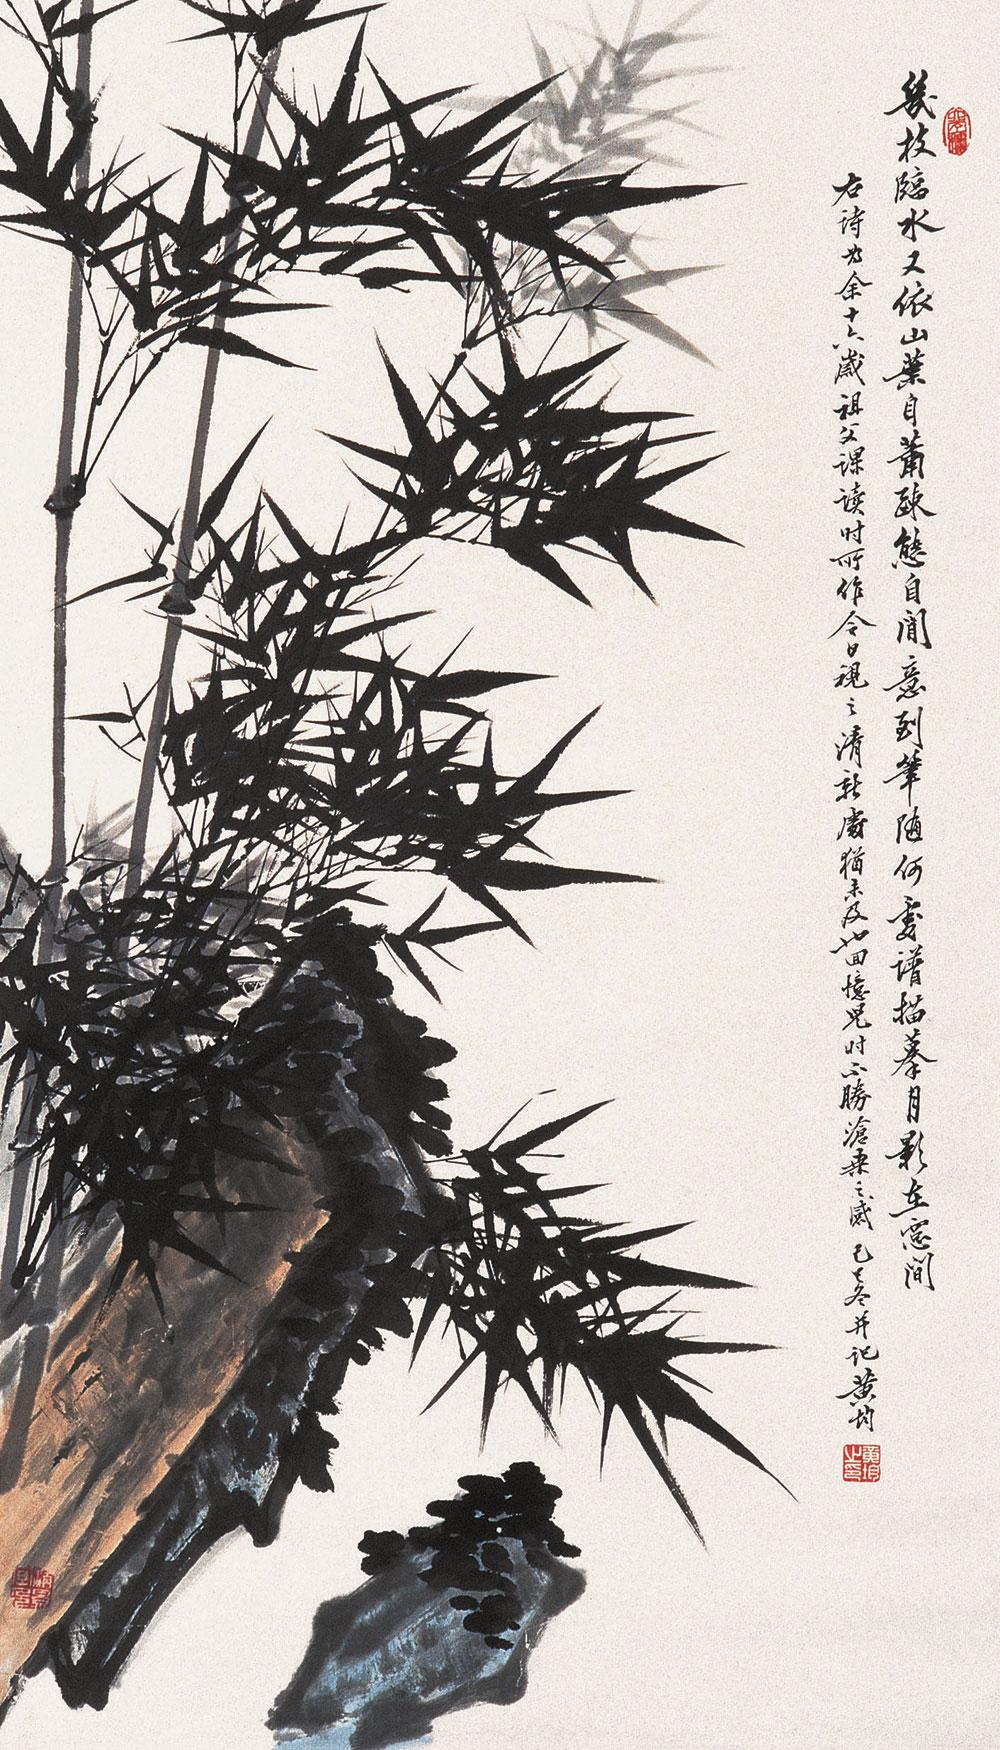 幾枝臨水又依山葉自蕭疎態自閒意到筆隨何處譜描摹月影在窓間
右诗为余十六歲祖父课读时所作今日视之清新處猶未及也回憶兒时不勝滄桑之感己巳冬并记黄均
黄均之印